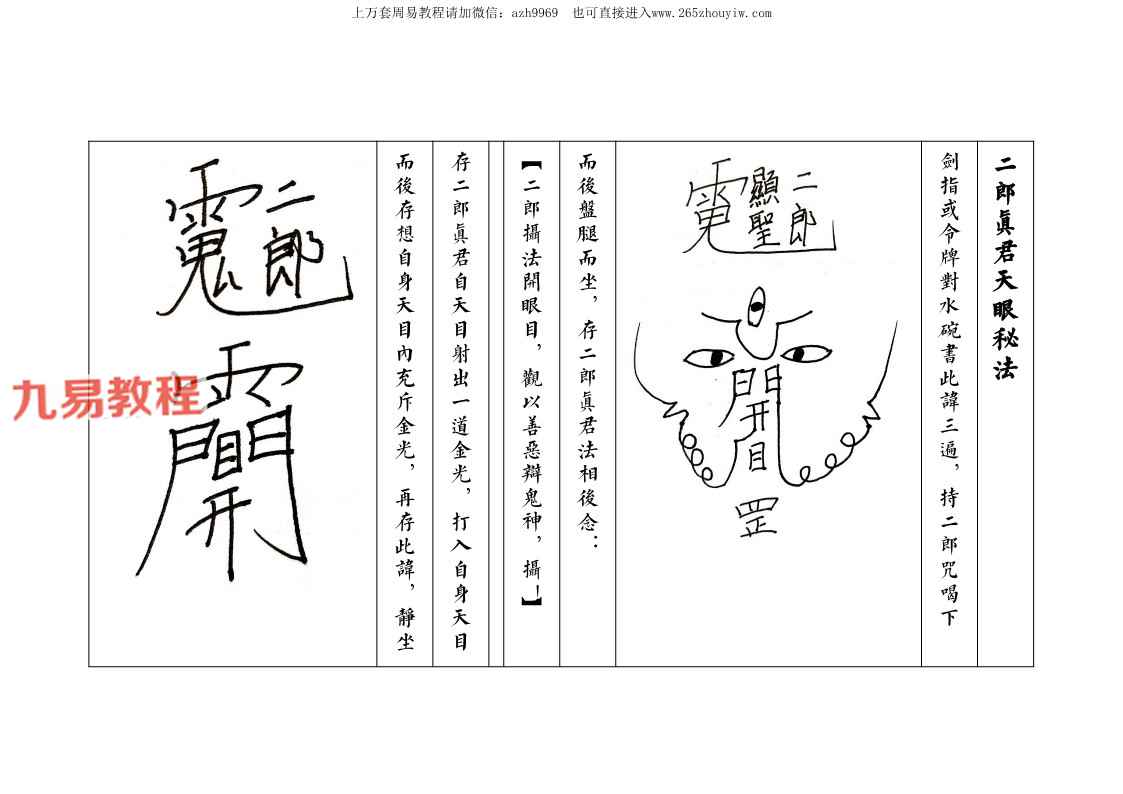 上万套周易教程请加微信：azh9969 也可直接进入www.265zhouyiw.com
二郎眞君天眼秘法
劍指或令牌對水碗書此諱三遍，持二郎咒喝下
二郎
顯聖
開
目
罡
而後盤腿而坐，存二郎眞君法相後念：
【二郎攝法開眼目，觀以善惡辯鬼神，攝！】
存二郎眞君自天目射出一道金光，打入自身天目
而後存想自身天目內充斥金光，再存此諱，靜坐
二郎
九易教程